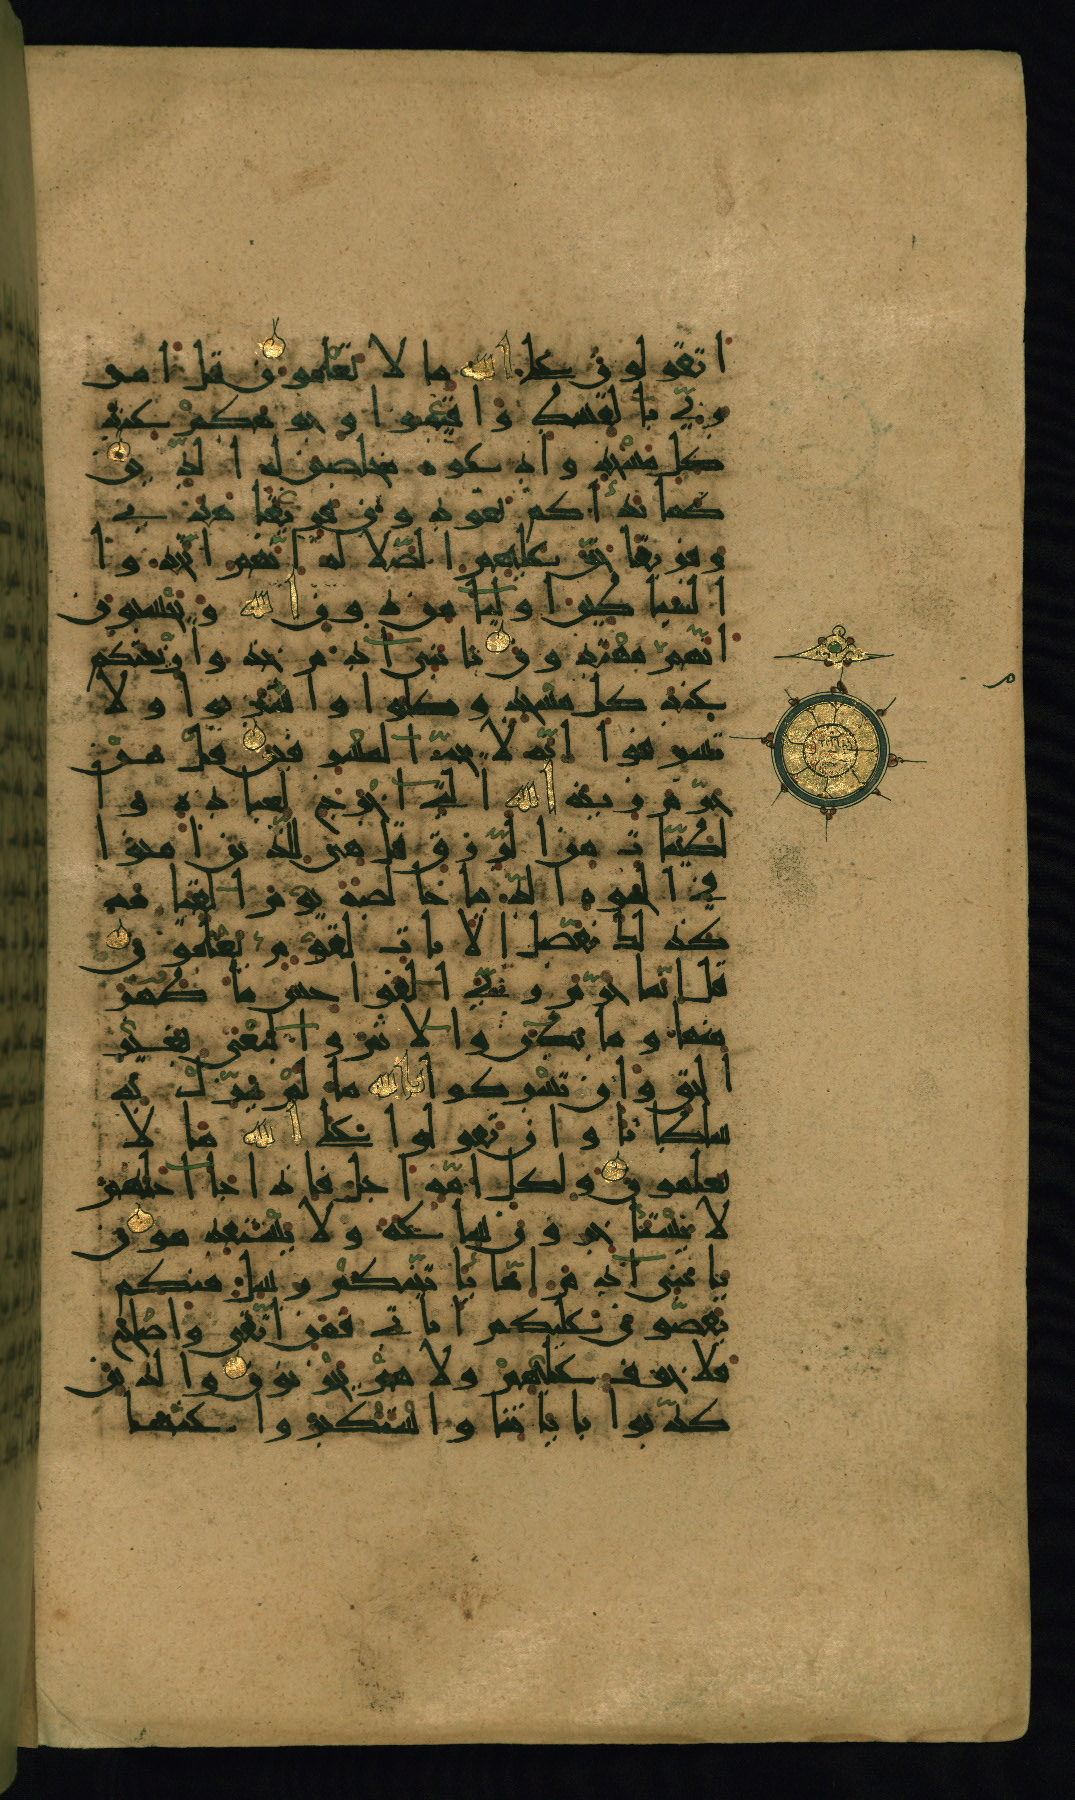 اتقولون على الله ما لا تعلمون قل امر
ربي بالقسط واقيموا وجوهكم عند
كل مسجد وادعوه مخلصين له الدين
كما بداكم تعودون فريقا هدى
وفريقا حق عليهم الضلالة انهم اتخذوا
الشياطين اوليا من دون الله ويحسبون
انهم مهتدون يا بني ادم خذوا زينتكم
عند كل مسجد وكلوا واشربوا ولا
تسرفوا انه لا يحب المسرفين قل من
حرم زينة الله التي اخرج لعباده وا
لطيبات من الرزق قل هي للذين امنوا
في الحيوة الدنيا خالصة يوم القيامة
كذلك نفصل الايات لقوم يعلمون
قل انما حرم ربي الفواحش ما ظهر
منها وما بطن والاثم والبغي بغير
الحق وان تشركوا بالله ما لم ينزل به
سلطانا وان تقولوا على الله ما لا
تعلمون ولكل امة اجل فاذا جا اجلهم
لا يستاخرون ساعة ولا يستقدمون
يا بني ادم اما ياتينكم رسل منكم
يقصون عليكم اياتي فمن اتقى واصلح
فلا خوف عليهم ولا هم يحزنون والذين
كذبوا باياتنا واستكبروا عنها